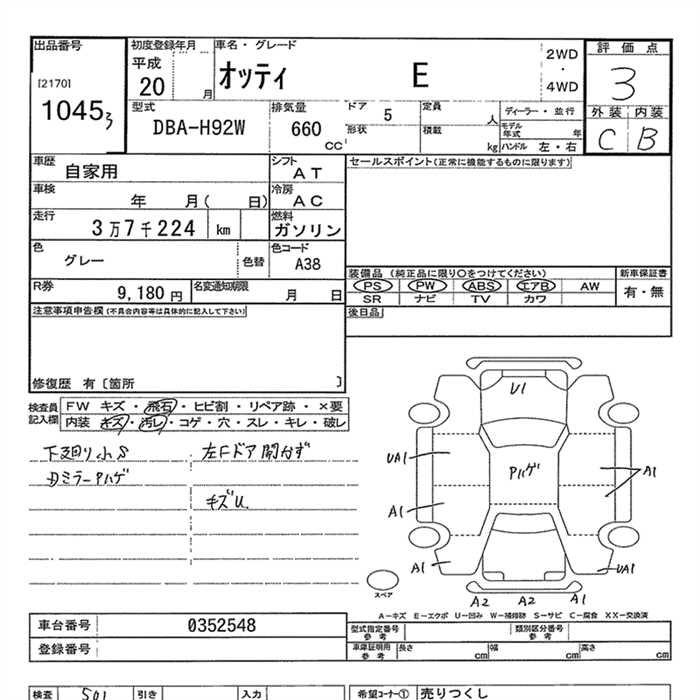 出品番号
[2170]
1045 3
初度登録年月
平成
20 月
車名・グレード
オッティ E
2WD
・
4WD
評価点
3
外装 内装
C B
型式
DBA-H92W
排気量
660 CC
ドア 5
形状
定員 人
積載 kg
ディーラー・並行
モデル年式 年
ハンドル 左・右
車歴 自家用
シフト AT
車検 年 月( 日)
冷房 AC
走行 3万7千224 km
燃料 ガソリン
色 グレー 色替
色コード A38
R券 9,180 円
名変通知期限 月 日
セールスポイント(正常に機能するものに限ります)
装備品 (純正品に限り○をつけてください)
PS PW ABS エアB AW
SR ナビ TV カワ
新車保証書
有・無
後日品
注意事項申告欄(不具合内容等は具体的に記入して下さい)
修復歴 有〔箇所 〕
検査員記入欄
FW キズ・飛石・ヒビ割・リペア跡・×要
内装 キズ・汚レ・コゲ・穴・スレ・キレ・破レ
下廻り小S
左Fドア開かず
Dミラーpハゲ
キズU
U1
UA1
Pハゲ
A1
A1
A1
UA1
A2 A2 A1
スペア
A-キズ E-エクボ U-凹み W-補修跡 S-サビ C-腐食 XX-交換済
車台番号 0352548
登録番号
型式指定番号 参考
類別区分番号 参考
車庫証明用 参考
長さ cm 幅 cm 高さ cm
検査 501 引き 入力
希望コーナー① 売りつくし